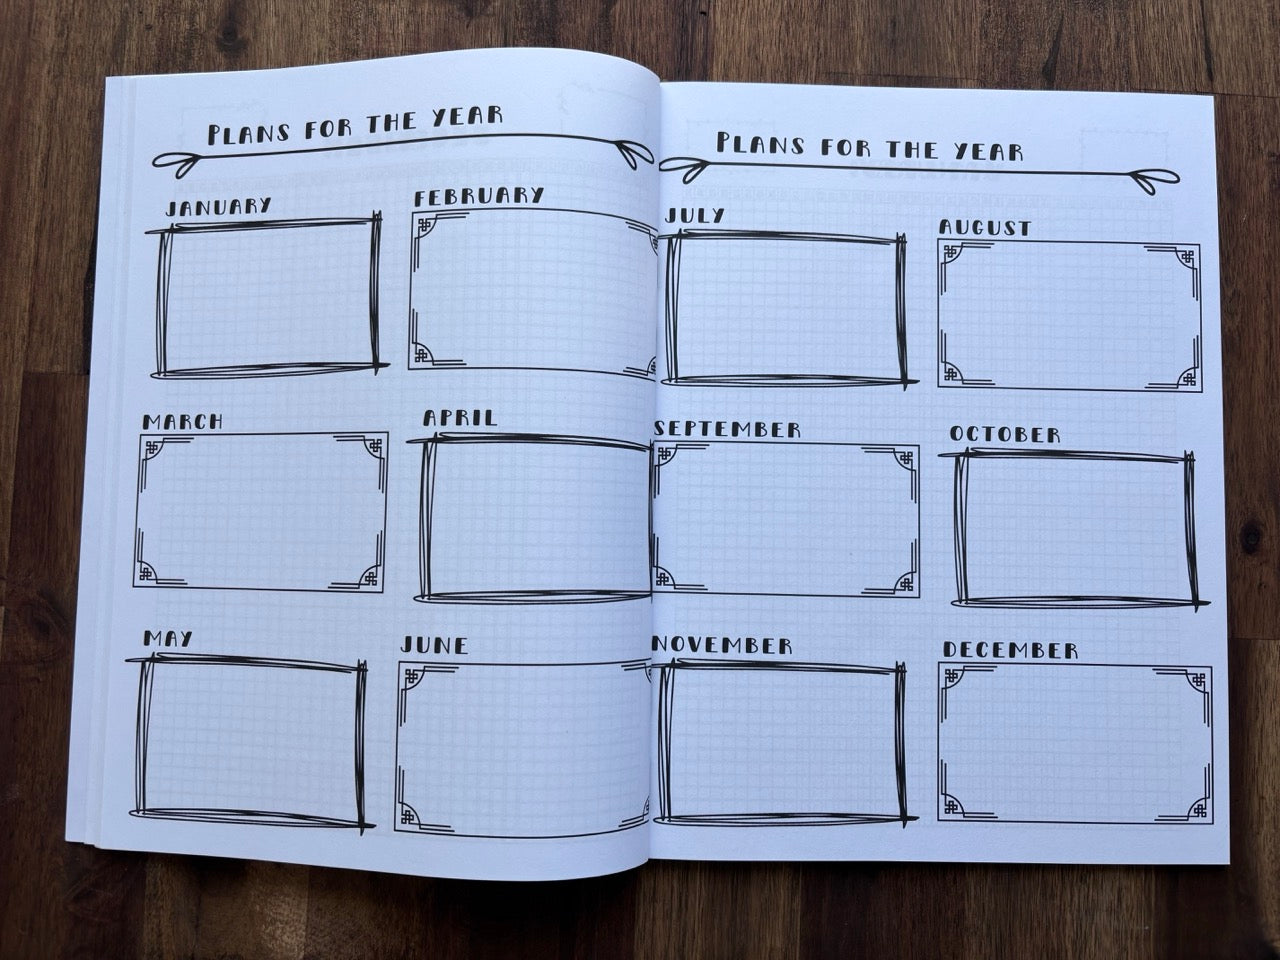 PLANS FOR THE YEAR
JANUARY
FEBRUARY
MARCH
APRIL
MAY
JUNE
PLANS FOR THE YEAR
JULY
AUGUST
SEPTEMBER
OCTOBER
NOVEMBER
DECEMBER